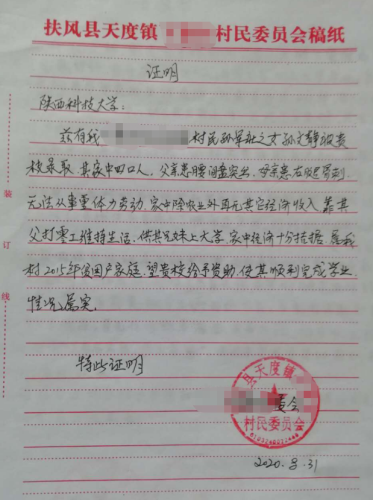 扶风县天度镇 村民委员会稿纸
证明
陕西科技大学：
兹有我 村民孙军社之女孙文静被贵
校录取 其家中四口人，父亲患腰间盘突出，母亲患右腿
无法从事重体力劳动，家中除农业外再无其它经济收入 靠其
父打零工维持生活，供其兄妹上大学，家中经济十分拮据 属我
村2015年贫困户家庭，望贵校给予资助，使其顺利完成学业，
情况属实
特此证明
县天度镇
委会
村民委员会
2020.8.31
装
订
线